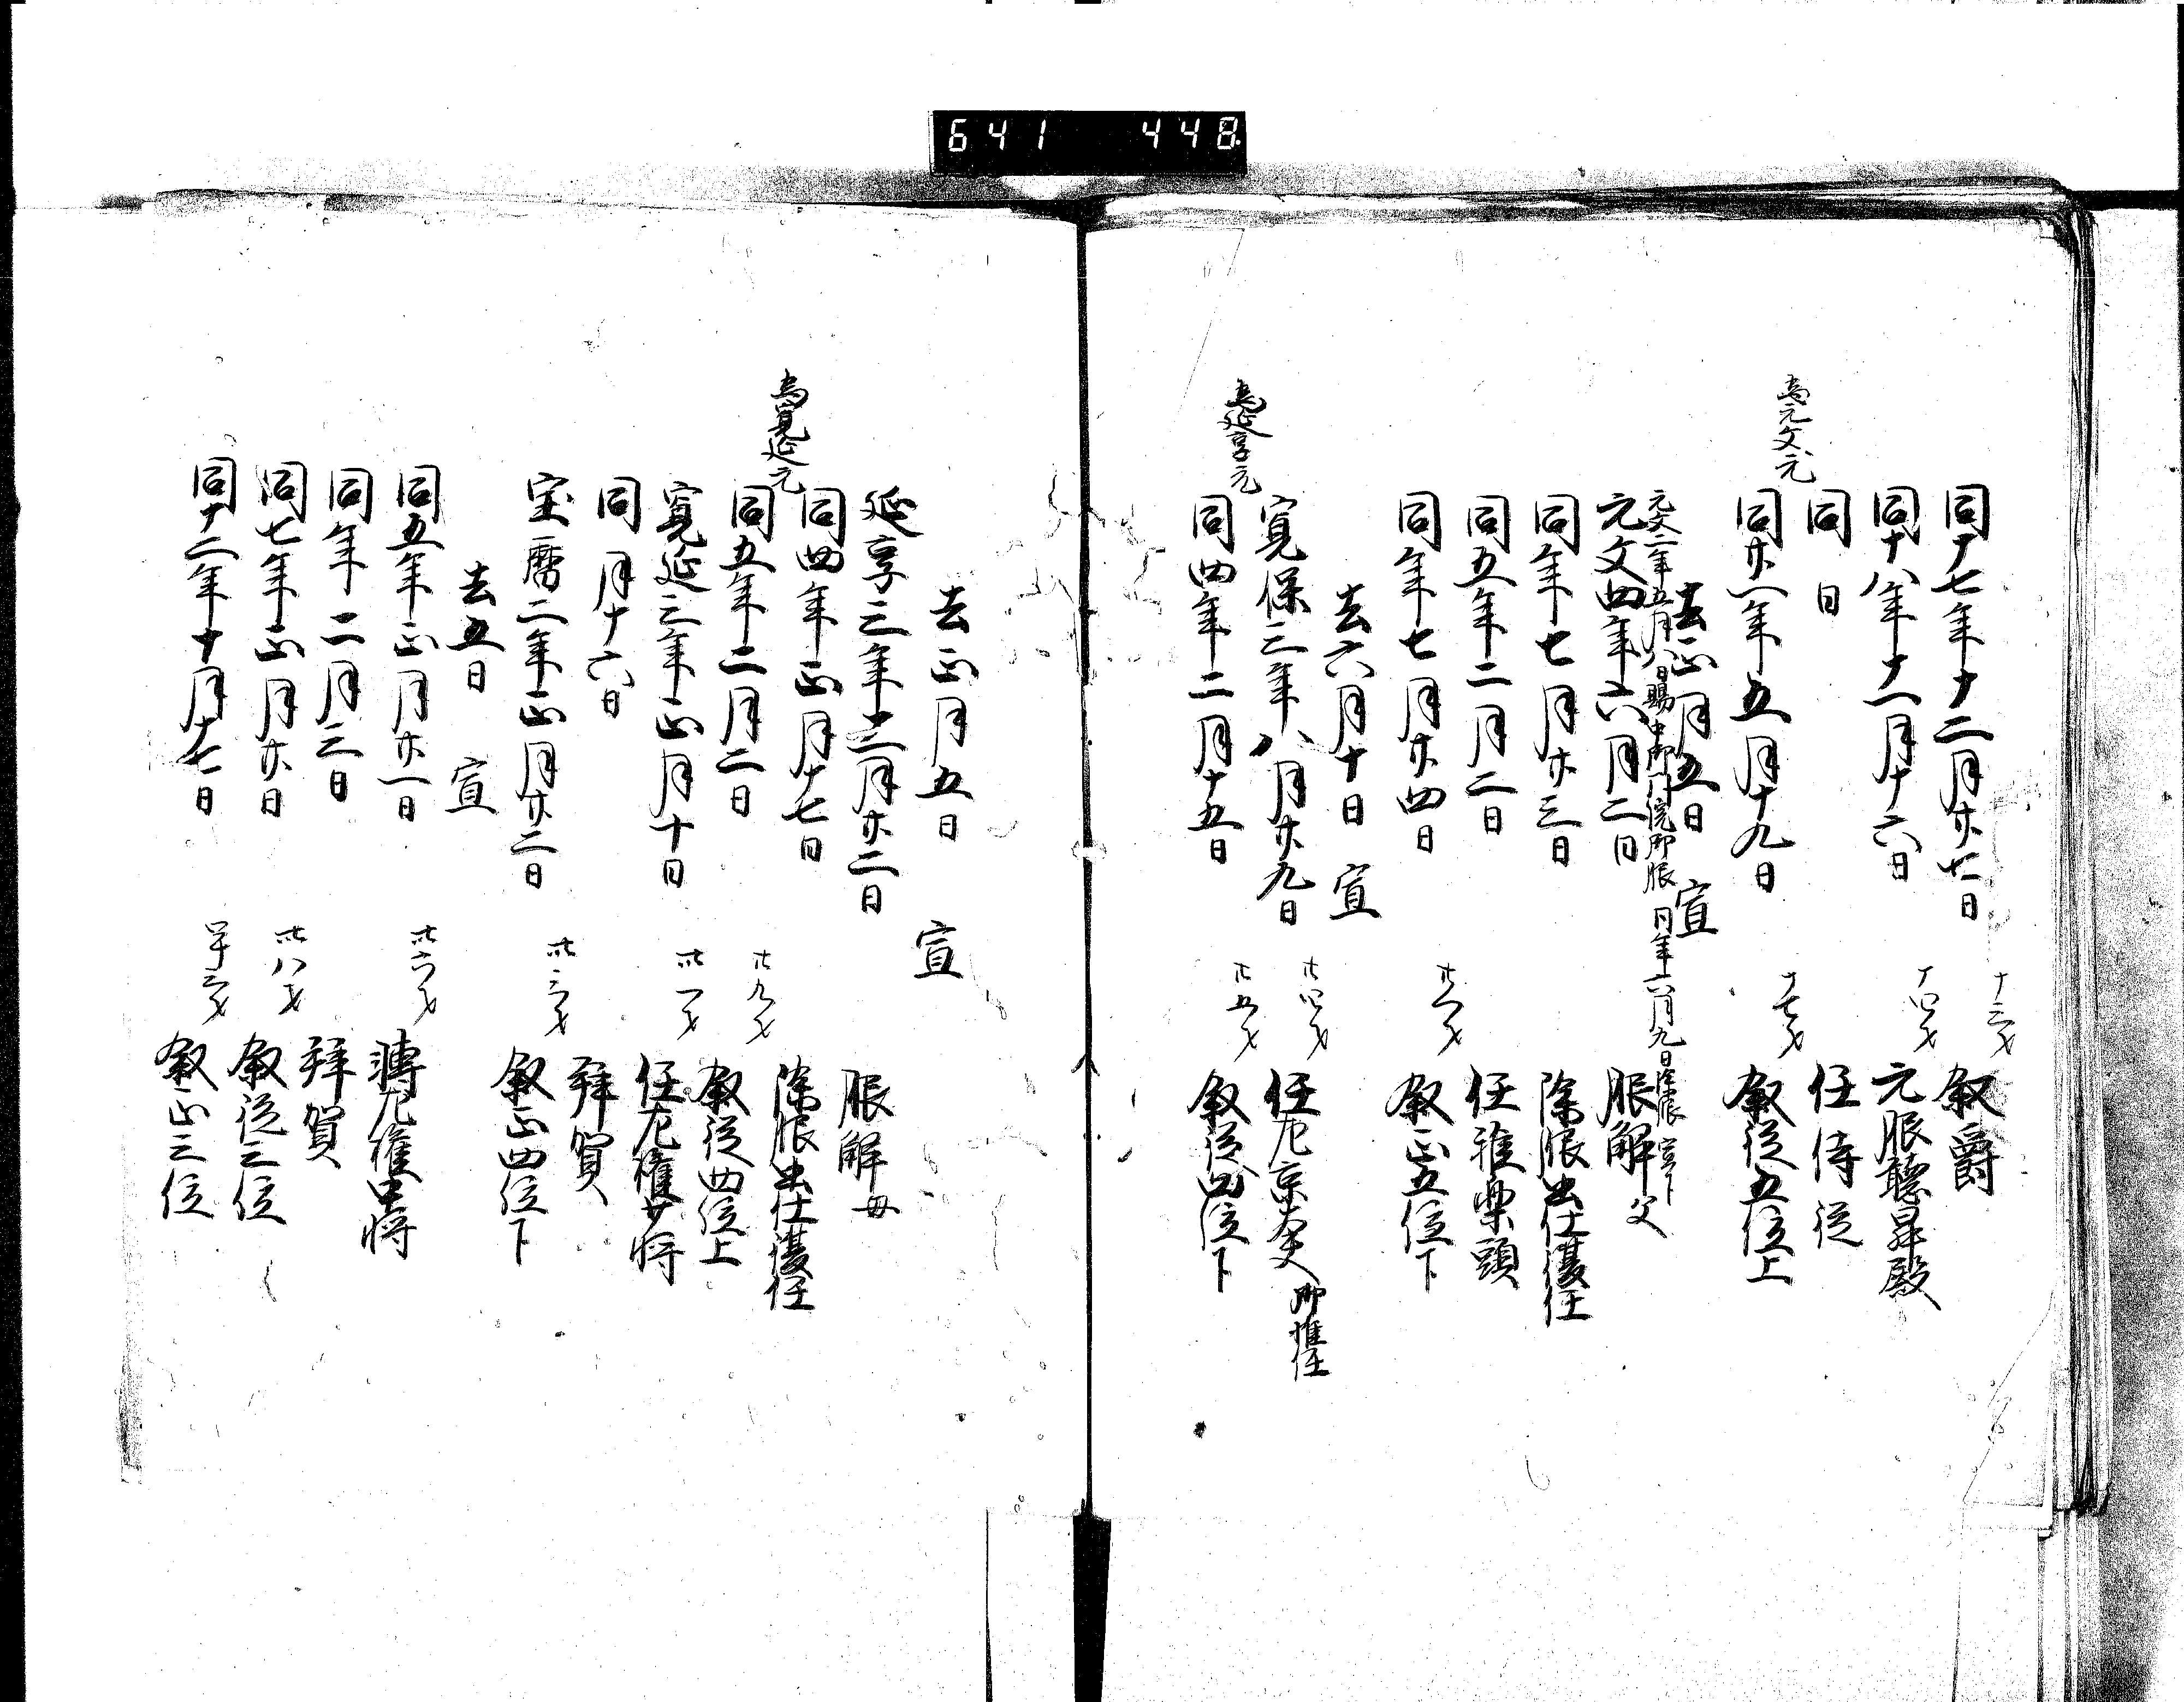 641 448
同十七年十二月廿七日 十三才 叙爵
同十八年十一月十六日 十四才 元服聴昇殿
同日 任侍従
為元文元
同廿一年五月十九日 十七才 叙従五位上
去正月五日 宣
元文二年五月八日賜中御門院御服 同年六月九日除服宣下
元文四年六月二日 服解父
同年七月廿三日 除服出仕復任
同五年二月二日 任雅楽頭
同年七月廿四日 廿一才 叙正五位下
去六月十日 宣
寛保三年八月廿九日 廿四才 任左京大夫 御推任
為延享元
同四年二月十五日 廿五才 叙従四位下
去正月五日 宣
延享三年十二月廿二日 服解母
同四年正月十七日 除服出仕復任
為寛延元
同五年二月二日 廿九才 叙従四位上
寛延三年正月十日 卅一才 任左権少将
同月十六日 拝賀
宝暦二年正月廿二日 卅三才 叙正四位下
去五日 宣
同五年正月廿一日 卅六才 転左権中将
同年二月三日 拝賀
同七年正月廿日 卅八才 叙従三位
同十二年十月十七日 四十三才 叙正三位